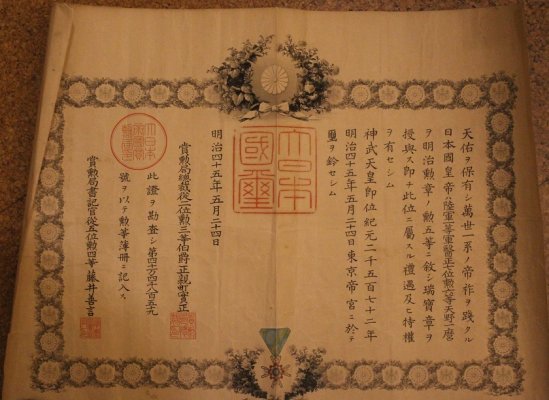 天佑ヲ保有シ萬世一系ノ帝祚ヲ踐タル
日本國皇帝ハ陸軍一等軍醫正六位勲六等天野一麿
ヲ明治勲章ノ勲五等ニ敘シ瑞寶章ヲ
授與ス即チ此位ニ屬スル禮遇及ヒ特權
ヲ有セシム
神武天皇即位紀元二千五百七十二年
明治四十五年五月二十四日東京帝宮ニ於テ
璽ヲ鈐セシム
大日本國璽
明治四十五年五月二十四日
賞勲局總裁從二位勲三等伯爵正親町實正
此證ヲ勘査シ第四十万四千八百五十九
號ヲ以テ勲等簿冊ニ記入ス
賞勲局書記官從五位勲四等藤井善言